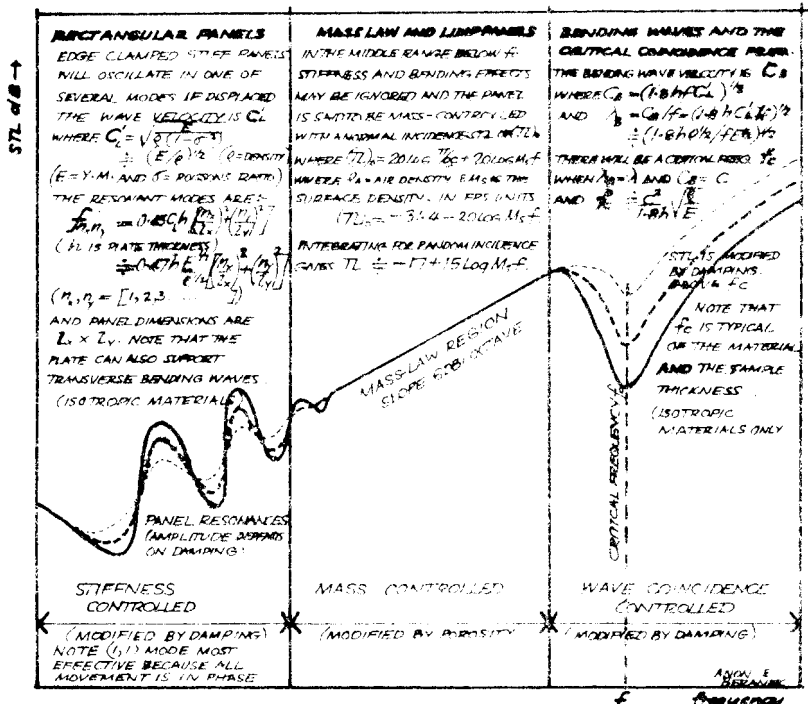 STL dB →
RECTANGULAR PANELS
EDGE CLAMPED STIFF PANELS
WILL OSCILLATE IN ONE OF
SEVERAL MODES IF DISPLACED
THE WAVE VELOCITY IS C'L
WHERE C'L = √E/ρ(1-σ²)
≑ (E/ρ)^1/2 (ρ=DENSITY
(E=Y.M. AND σ=POISONS RATIO)
THE RESONANT MODES ARE:-
(h IS PLATE THICKNESS)
(n, ny = [1,2,3 ... ])
AND PANEL DIMENSIONS ARE
Lx × Ly. NOTE THAT THE
PLATE CAN ALSO SUPPORT
TRANSVERSE BENDING WAVES.
(ISOTROPIC MATERIAL)
PANEL RESONANCES
(AMPLITUDE DEPENDS
ON DAMPING)
STIFFNESS
CONTROLLED
(MODIFIED BY DAMPING)
NOTE (1,1) MODE MOST
EFFECTIVE BECAUSE ALL
MOVEMENT IS IN PHASE
MASS LAW AND LIMP PANELS
IN THE MIDDLE RANGE BELOW fc
STIFFNESS AND BENDING EFFECTS
MAY BE IGNORED AND THE PANEL
IS SAID TO BE MASS-CONTROLLED
WITH A NORMAL INCIDENCE STL OF (TL)o
WHERE = AIR DENSITY & Ms IS THE
SURFACE DENSITY. IN FPS UNITS
INTEGRATING FOR RANDOM INCIDENCE
GIVES TL ≑ -17 + 15 LOG Msf
MASS-LAW REGION
SLOPE 6DB/OCTAVE
MASS CONTROLLED
(MODIFIED BY POROSITY
BENDING WAVES AND THE
CRITICAL COINCIDENCE FREQ.
THE BENDING WAVE VELOCITY IS CB
WHERE CB = (1·8hfC'L)^1/2
AND
THERE WILL BE A CRITICAL FREQ. fc
WHEN AND CB = C
AND
STL IS MODIFIED
BY DAMPING
ABOVE fc
NOTE THAT
fc IS TYPICAL
OF THE MATERIAL
AND THE SAMPLE
THICKNESS
(ISOTROPIC
MATERIALS ONLY
CRITICAL FREQUENCY fc
WAVE COINCIDENCE
CONTROLLED
(MODIFIED BY DAMPING)
ANON &
BERANEK
f frequency